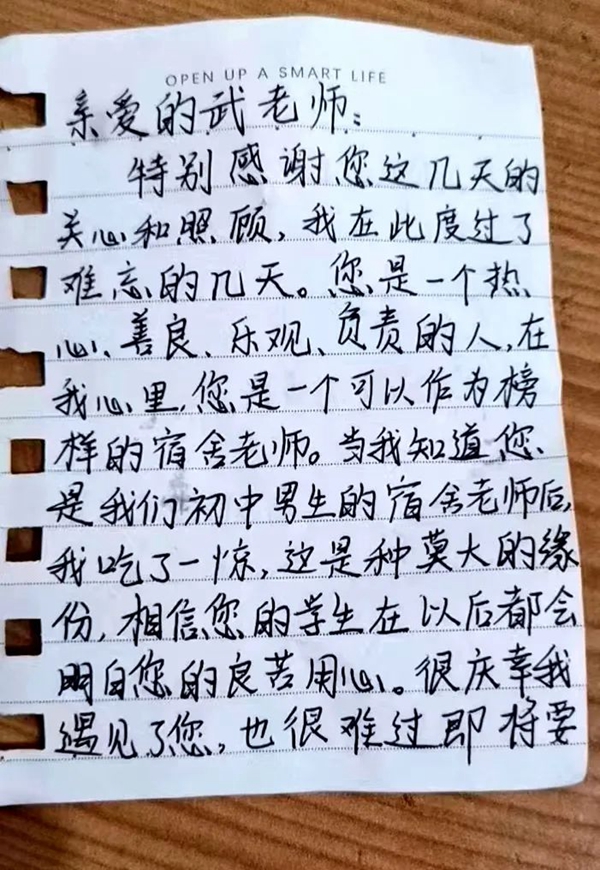 OPEN UP A SMART LIFE
亲爱的武老师:
特别感谢您这几天的
关心和照顾,我在此度过了
难忘的几天。您是一个热
心、善良、乐观、负责的人,在
我心里,您是一个可以作为榜
样的宿舍老师。当我知道您
是我们初中男生的宿舍老师后,
我吃了一惊,这是种莫大的缘
份,相信您的学生在以后都会
明白您的良苦用心。很庆幸我
遇见了您,也很难过即将要